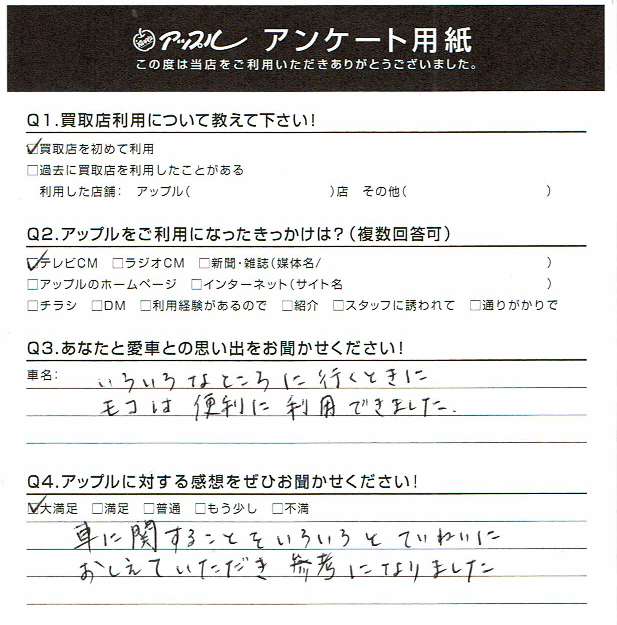 アップル アンケート用紙
この度は当店をご利用いただきありがとうございました。
Q1.買取店利用について教えて下さい!
☑買取店を初めて利用
□過去に買取店を利用したことがある
利用した店舗: アップル( )店 その他( )
Q2.アップルをご利用になったきっかけは?(複数回答可)
☑テレビCM □ラジオCM □新聞・雑誌(媒体名/ )
□アップルのホームページ □インターネット(サイト名 )
□チラシ □DM □利用経験があるので □紹介 □スタッフに誘われて □通りがかりで
Q3.あなたと愛車との思い出をお聞かせください!
車名: いろいろなところに行くときに
モコは便利に利用できました.
Q4.アップルに対する感想をぜひお聞かせください!
☑大満足 □満足 □普通 □もう少し □不満
車に関することをいろいろとていねいに
おしえていただき参考になりました